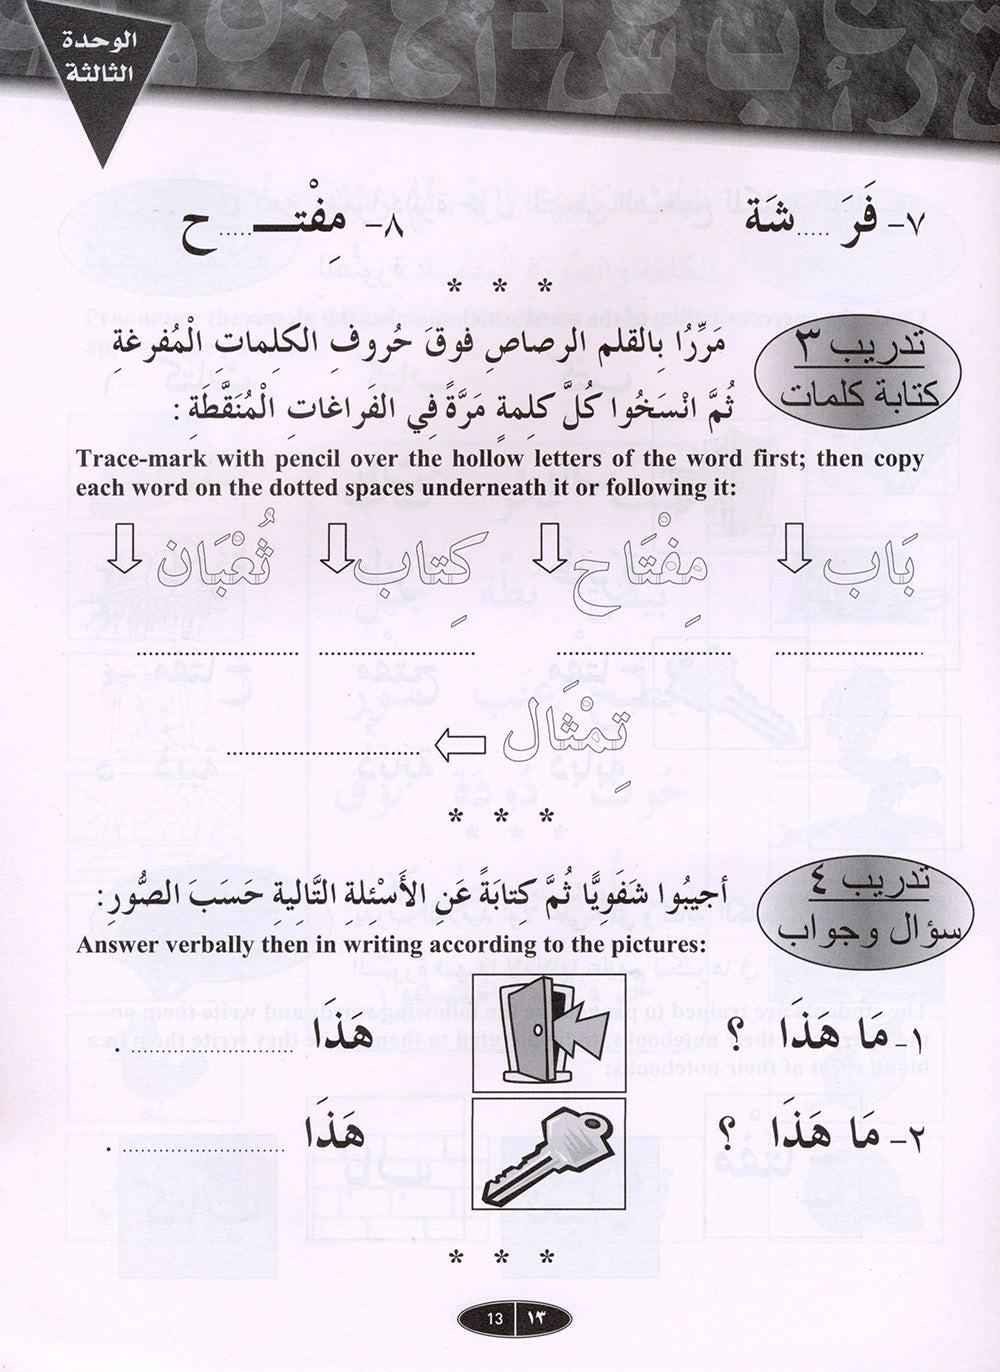 الوحدة
الثالثة
٧- فَرَ.....شَة ٨- مِفْتـــ.....ح
* * *
تدريب ٣
كتابة كلمات
مَرِّرُا بِالقلم الرصاصِ فوقَ حُروفِ الكلِمات الْمُفرغةِ
ثُمَّ انْسَخُوا كُلَّ كلِمةٍ مَرَّةً فِي الفَراغاتِ الْمُنَقَّطَةِ :
Trace-mark with pencil over the hollow letters of the word first; then copy
each word on the dotted spaces underneath it or following it:
بَاب مِفْتَاح كِتاب ثُعْبَان
........................ ........................ ........................ ........................
تِمْثَال ........................
* * *
تدريب ٤
سؤال وجواب
أجيبُوا شَفَوِيًّا ثُمَّ كِتابَةً عَنِ الأَسْئِلةِ التَّاليةِ حَسَبَ الصُّورِ :
Answer verbally then in writing according to the pictures:
١- مَا هَذَا ؟ هَذَا ........................ .
٢- مَا هَذَا ؟ هَذَا ........................ .
* * *
13 ١٣